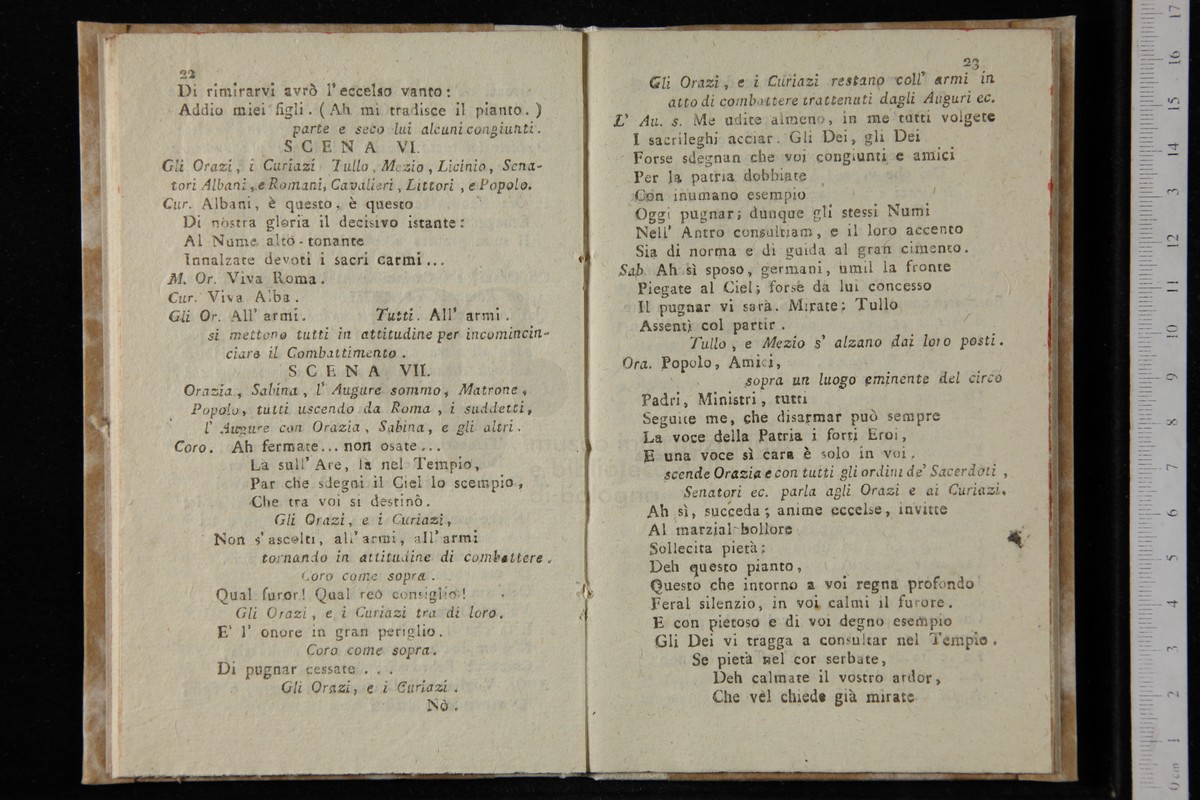 22
Di rimirarvi avrò l'eccelso vanto:
Addio miei figli. (Ah mi tradisce il pianto.)
parte e seco lui alcuni congiunti.
SCENA VI.
Gli Orazi, i Curiazi Tullo, Mezio, Licinio, Sena-
tori Albani, e Romani, Cavalieri, Littori, e Popolo.
Cur. Albani, è questo, è questo
Di nostra gloria il decisivo istante:
Al Nume alto-tonante
Innalzate devoti i sacri carmi...
M. Or. Viva Roma.
Cur. Viva Alba.
Gli Or. All' armi. Tutti. All' armi.
si mettono tutti in attitudine per incomincin-
ciare il Combattimento.
SCENA VII.
Orazia, Sabina, l' Augure sommo, Matrone,
Popolo, tutti uscendo da Roma, i suddetti,
l' Augure con Orazia, Sabina, e gli altri.
Coro. Ah fermate... non osate...
Là sull' Are, là nel Tempio,
Par che sdegni il Ciel lo scempio,
Che tra voi si destinò.
Gli Orazi, e i Curiazi,
Non s'ascolti, all'armi, all'armi
tornando in attitudine di combattere.
Coro come sopra.
Qual furor! Qual reo consiglio!
Gli Orazi, e i Curiazi tra di loro.
E' l' onore in gran periglio.
Coro come sopra.
Di pugnar cessate...
Gli Orazi, e i Curiazi.
Nò.
23
Gli Orazi, e i Curiazi restano coll' armi in
atto di combattere trattenuti dagli Auguri ec.
L' Au. s. Me udite almeno, in me tutti volgete
I sacrileghi acciar. Gli Dei, gli Dei
Forse sdegnan che voi congiunti e amici
Per la patria dobbiate
Con inumano esempio
Oggi pugnar; dunque gli stessi Numi
Nell' Antro consultiam, e il loro accento
Sia di norma e di guida al gran cimento.
Sab. Ah sì sposo, germani, umil la fronte
Piegate al Ciel; forse da lui concesso
Il pugnar vi sarà. Mirate: Tullo
Assentì col partir.
Tullo, e Mezio s' alzano dai loro posti.
Ora. Popolo, Amici,
sopra un luogo eminente del circo
Padri, Ministri, tutti
Seguite me, che disarmar può sempre
La voce della Patria i forti Eroi,
E una voce sì cara è solo in voi.
scende Orazia e con tutti gli ordini de' Sacerdoti,
Senatori ec. parla agli Orazi e ai Curiazi.
Ah sì, succeda; anime eccelse, invitte
Al marzial bollore
Sollecita pietà:
Deh questo pianto,
Questo che intorno a voi regna profondo
Feral silenzio, in voi calmi il furore.
E con pietoso e di voi degno esempio
Gli Dei vi tragga a consultar nel Tempio.
Se pietà nel cor serbate,
Deh calmate il vostro ardor,
Che vel chiede già mirate